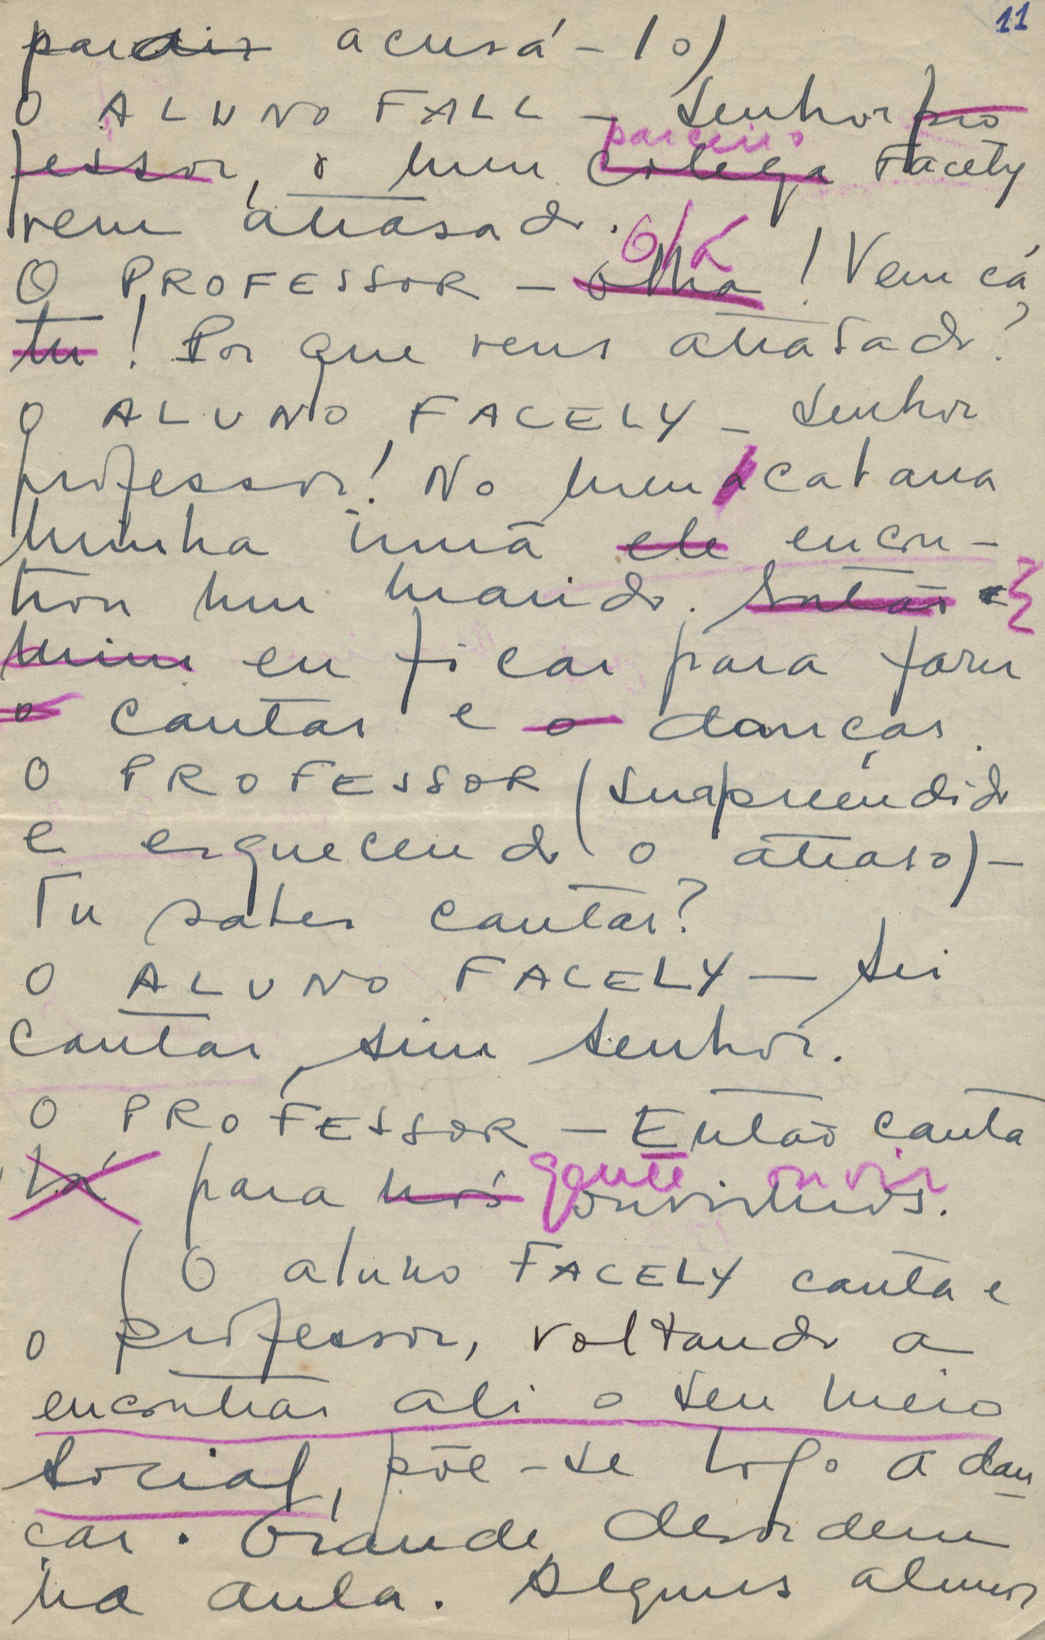 11
para ir acusá-lo)
O ALUNO FALL - Senhor pro
fessor, o meu colega Facely
parceiro
vem atrasado.
Olá
O PROFESSOR - olha! Vem cá
tu! Por que vens atrasado?
O ALUNO FACELY - Senhor
professor! No meu cabana
minha irmã ele encon-
trou um marido. Então a
mim eu ficar para fazer
o cantar e o dançar.
O PROFESSOR (surpreendido
e esquecendo o atraso) -
Tu sabes cantar?
O ALUNO FACELY - Sei
cantar, sim senhor.
O PROFESSOR - Então canta
gente ouvir
lá para nós ouvirmos.
(O aluno FACELY canta e
o professor, voltando a
encontrar ali o seu meio
social, põe-se logo a dan
çar. Grande desordem
na aula. Alguns alunos